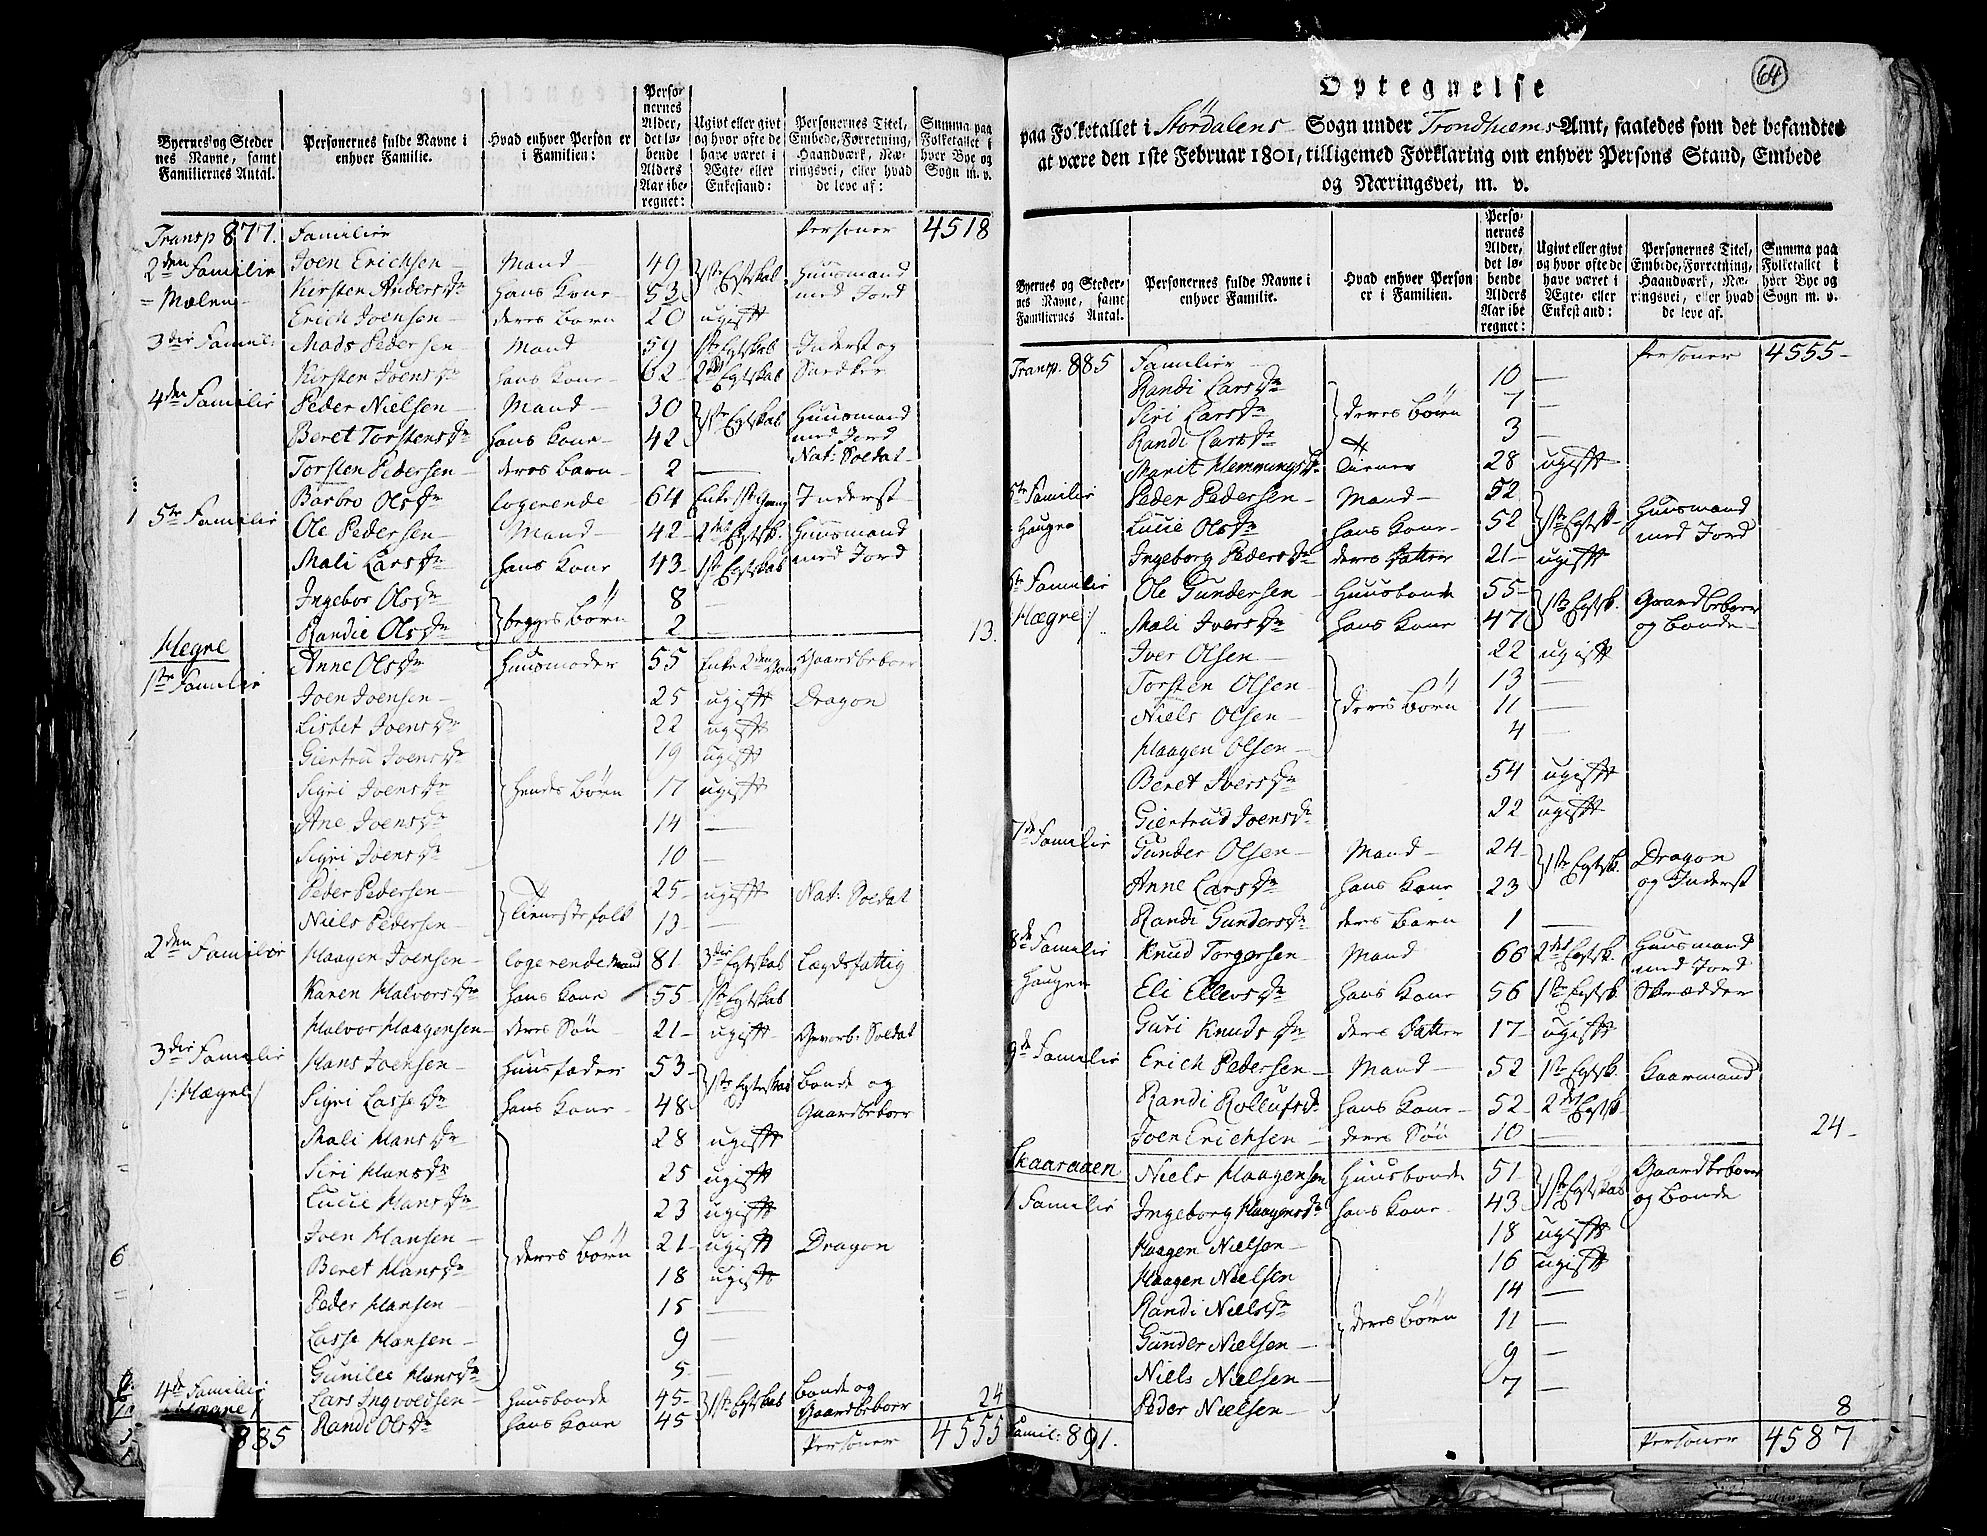 Byernes og Steder nes Navne, samt Familiernes Antal. | Personernes fulde Navne i enhver Familie. | Hvad enhver Person er i Familien: | Personernes Alder, det løbende Alders Aar iberegnet: | Ugivt eller givt og hvor ofte de have været i Ægte- eller Enkestand: | Personernes Titel, Embede, Forretning, Haandværk, Næringsvei, eller hvad de leve af: | Summa paa Folketallet i hver Bye og Sogn m. v.
Transp 877. Familier Personer 4518
2den Familie Joen Erichsen Mand 49 1ste Egtskab Huusmand
Mælen Kirsten Andersdr hans Kone 53 med Jord
Erich Joensen deres Barn 20 ugift
3die Famil: Mads Pedersen Mand 59 1ste Egtskab Inderst og
Kirsten Joensdr hans Kone 62 2det Egtskab
4de Familie Peder Nielsen Mand 30 1ste Egtskab Huusmand
Beret Torstensdr hans Kone 42 med Jord
Nat: Soldat
Torsten Pedersen deres Barn 2 —
Barbro Olsdr logerende 64 Enke 1ste gang Inderst
5te Familie Ole Pedersen Mand 42 2det Egtsk. Huusmand
Mali Larsdr hans Kone 43 1ste Egtskab med Jord
Ingebor Olsdr begges Børn 8 —
Randie Olsdr 2 — 13.
Hegne
1ste Familie Anne Olsdr Huusmoder 55 Enke 2den gang Gaardbeboer
Joen Joensen 25 ugift Dragon
Lisbet Joensdr 22 ugift
Giertru Joensdr 19 ugift
Sigri Joensdr hendes Børn 17 ugift
Ane Joensdr 14 —
Sigri Joensdr 10 —
Peder Pedersen Tieneste folk 25 ugift Nat: Soldat
Niels Pedersen 13 —
2den Familie Haagen Joensen logerende Mand 81 3die Egtskab Lægdsfattig
Karen Halvorsdr hans Kone 55 1ste Egtskab
Halvor Haagensen deres Søn 21 ugift Gevorb: Soldat
3die Familie Hans Joensen Huusfader 53 1ste Egteskab Bonde og
/: Hægne / Sigri Lassedr hans Kone 48 Gaardbeboer
Mali Hansdr 28 ugift
Siri Hansdr 25 ugift
Lucie Hansdr 23 ugift
Joen Hansen deres Børn 21 ugift Dragon
Beret Hansdr 18 ugift
Peder Hansen 15 —
Lasse Hansen 9 —
Gunilee Hansdr 5 —
4de Familie Lars Ingvoldsen Huusbonde 45 1ste Egtskab Bonde og 24
Randi Olsdr hans Kone 45 Gaardbeboer
885 Personer 4555
64
Optegnelse
paa Folketallet i Stördalens Sogn under Trondhiems Amt, saaledes som det befandtes
at være den 1ste Februar 1801, tilligemed Forklaring om enhver Persons Stand, Embede
og Næringsvei, m. v.
Byernes og Stedernes Navne, samt Familiernes Antal. | Personernes fulde Navne i enhver Familie. | Hvad enhver Person er i Familien. | Personernes Alder, det løbende Alders Aar iberegnet: | Ugivt eller givt og hvor ofte de have været i Ægte- eller Enkestand: | Personernes Titel, Embede, Forretning, Haandværk, Næringsvei, eller hvad de leve af. | Summa paa Folketallet i hver Bye og Sogn m. v.
Transp. 885 Familier Personer 4555
Randi Larsdr 10 —
Siri Larsdr deres Børn 7 —
Randi Larsdr 3 —
Marit Hemmingsdr Tiener 28 ugift
5te Familie Peder Pedersen Mand 52 1ste Egtsk. Huusmand
Haugen Lucie Olsdr hans Kone 52 med Jord
Ingeborg Pedersdr deres Datter 21 ugift
6te Familie Ole Gundersen Huusbonde 55 1ste Egtsk. Gaardbeboer
Hægne :/ Mali Iversdr hans Kone 47 og Bonde
Iver Olsen 22 ugift
Torsten Olsen deres Børn 13 —
Niels Olsen 11 —
Haagen Olsen 4 —
Beret Iversdr 54 ugift
Giertrud Joensdr 22 ugift
7de Familie Gunder Olsen Mand 24 1ste Egtsk. Dragon
Anne Larsdr hans Kone 23 og Inderst
Randi Gundersdr deres Barn 1 —
8de Familie Knud Torgersen Mand 66 2det Egtsk. Huusmand
med Jord
Haugen Eli Ellevsdr hans Kone 56 1ste Egtsk. Skrædder
Guri Knudsdr deres Datter 17 ugift
9de Familie Erich Pedersen Mand 52 1ste Egtsk. Kaarmand
Randi Rollufsdr hans Kone 52 2det Egtsk.
Joen Erichsen deres Søn 10 — 24
Skaaraaen Niels Haagensen Huusbonde 51 1ste Egtskab Gaardbeboer
1 Familie Ingeborg Haagensdr hans Kone 43 og Bonde
Haagen Nielsen 18 ugift
Haagen Nielsen 16 ugift
Randi Nielsdr deres Børn 14 —
Gunder Nielsen 11 —
Niels Nielsen 9 —
Peder Nielsen 7 — 8
Famil: 891. Personer 4587